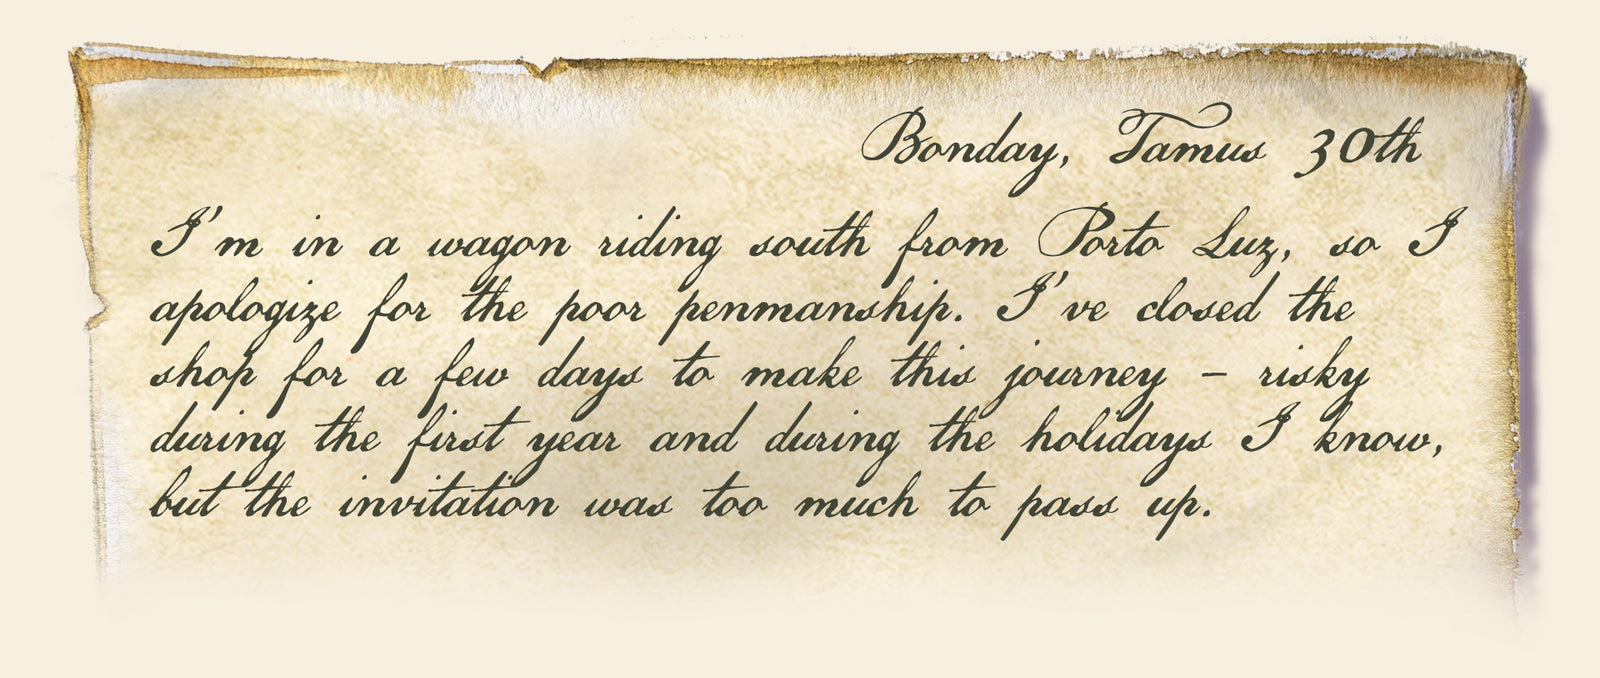 Bonday, Tamus 30th
I've in a wagon riding south from Porto Luz, so I
apologize for the poor penmanship. I've closed the
shop for a few days to make this journey – risky
during the first year and during the holidays I know,
but the invitation was too much to pass up.